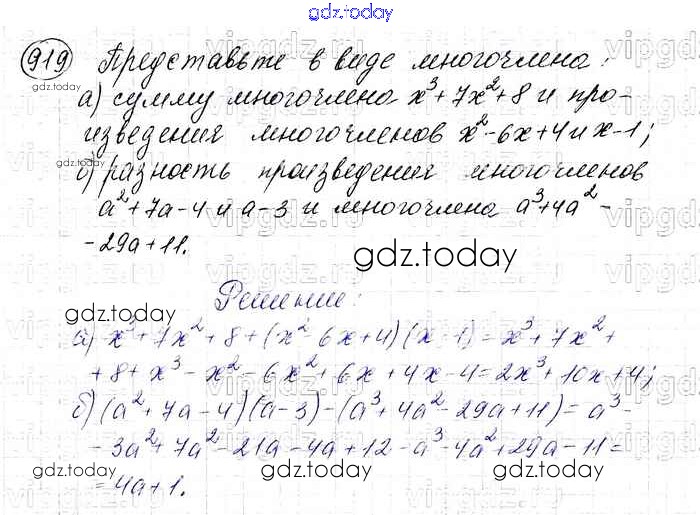 gdz.today
919 Представьте в виде многочлена:
gdz.today
а) сумму многочлена x³+7x²+8 и про-
изведения многочленов x²-6x+4 и x-1;
gdz.today
б) разность произведения многочленов
a²+7a-4 и a-3 и многочлена a³+4a²-
-29a+11.
gdz.today
Решение:
gdz.today
а) x³+7x²+8+(x²-6x+4)(x-1)=x³+7x²+
+8+x³-x²-6x²+6x+4x-4=2x³+10x+4;
gdz.today
б) (a²+7a-4)(a-3)-(a³+4a²-29a+11)=a³-
-3a²+7a²-21a-4a+12-a³-4a²+29a-11=
gdz.today gdz.today gdz.today
=4a+1.